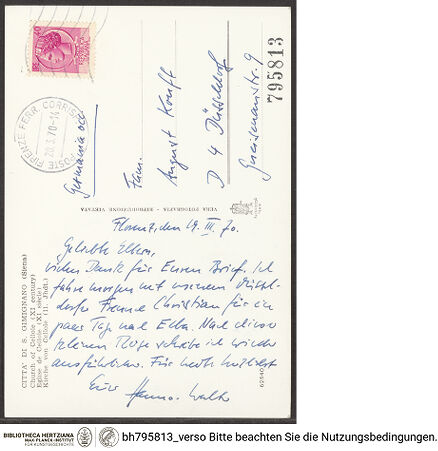 795813
FIRENZE FERR. CORRISP. POSTE
20.3.70-14
Germania occ.
Fam.
August Kraft
D 4 Düsseldorf
Gneisenaustr. 9
VERA FOTOGRAFIA - RIPRODUZIONE VIETATA
CITTA' DI S. GIMIGNANO (Siena)
Church of Cellole (XI century)
Eglise de Cellole (XI siècle)
Kirche von Cellole (11. Jhdt.)
Florenz, den 19. III. 70.
Geliebte Eltern,
vielen Dank für Euren Brief. Ich
fahre morgen mit unserem
Freund Christian für ein
paar Tage nach Elba. Nach dieser
kleinen Pause schreibe ich wieder
ausführlicher. Für heute herzlichst
Euer Hanno-Walter
BIBLIOTHECA HERTZIANA
MAX-PLANCK-INSTITUT
FÜR KUNSTGESCHICHTE
bh795813_verso Bitte beachten Sie die Nutzungsbedingungen.